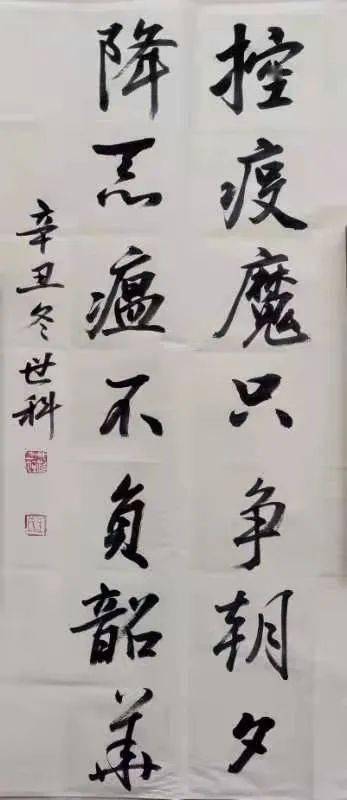 控疫魔只争朝夕
降恶瘟不负韶华
辛丑冬世科